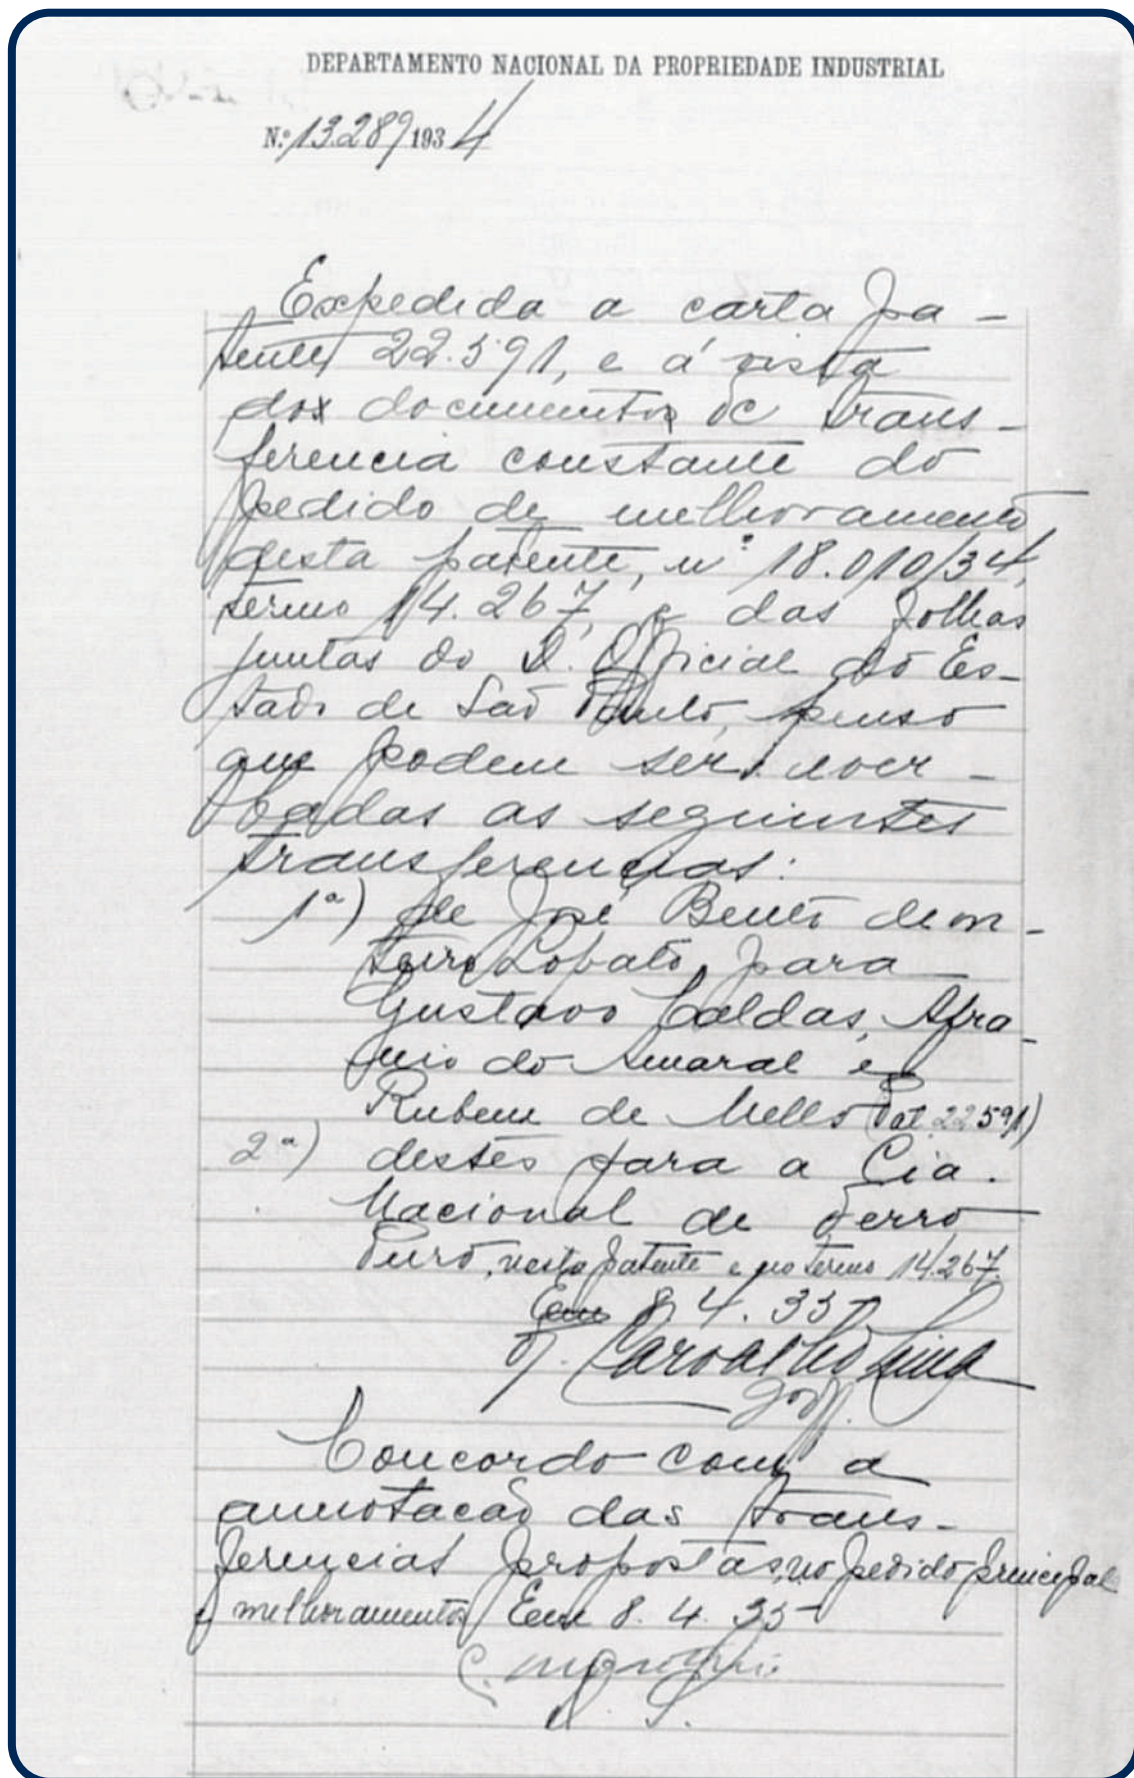 DEPARTAMENTO NACIONAL DA PROPRIEDADE INDUSTRIAL
N.º 13.289 1934
Expedida a carta pa-
tente 22.591, e á vista
dos documentos de trans-
ferencia constante do
pedido de melhoramento
desta patente, nº 18.010/34,
termo 14.267, e das folhas
juntas do D. Official do Es-
tado de São Paulo, penso
que podem ser aver-
badas as seguintes
transferencias:
1ª) de José Bento de Mon-
teiro Lobato, para
Gustavo Caldas, Afra-
nio do Amaral e
Rubem de Mello (Pat. 22591)
2ª) destes para a Cia.
Nacional de Ferro
Puro, nesta patente e no termo 14.267.
Em 8 4. 35
J. Carvalho Lima
Concordo com a
annotacão das trans-
ferencias propostas, no pedido principal
e melhoramento Em 8. 4. 35